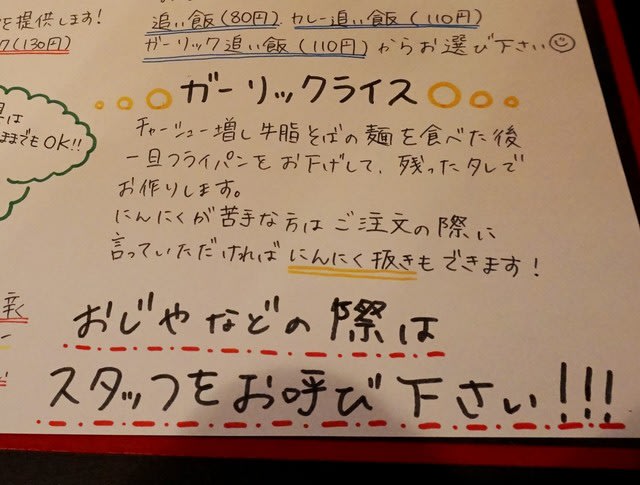 を提供します!
ク(130円)
追い飯(80円)、カレー追い飯(110円)
ガーリック追い飯(110円)からお選び下さい
ガーリックライス
は
ままでもOK!!
チャーシュー増し牛脂そばの麺を食べた後
一旦フライパンをお下げして、残ったタレで
お作りします。
にんにくが苦手な方はご注文の際に
言っていただければにんにく抜きもできます!
おじやなどの際は
スタッフをお呼び下さい!!!